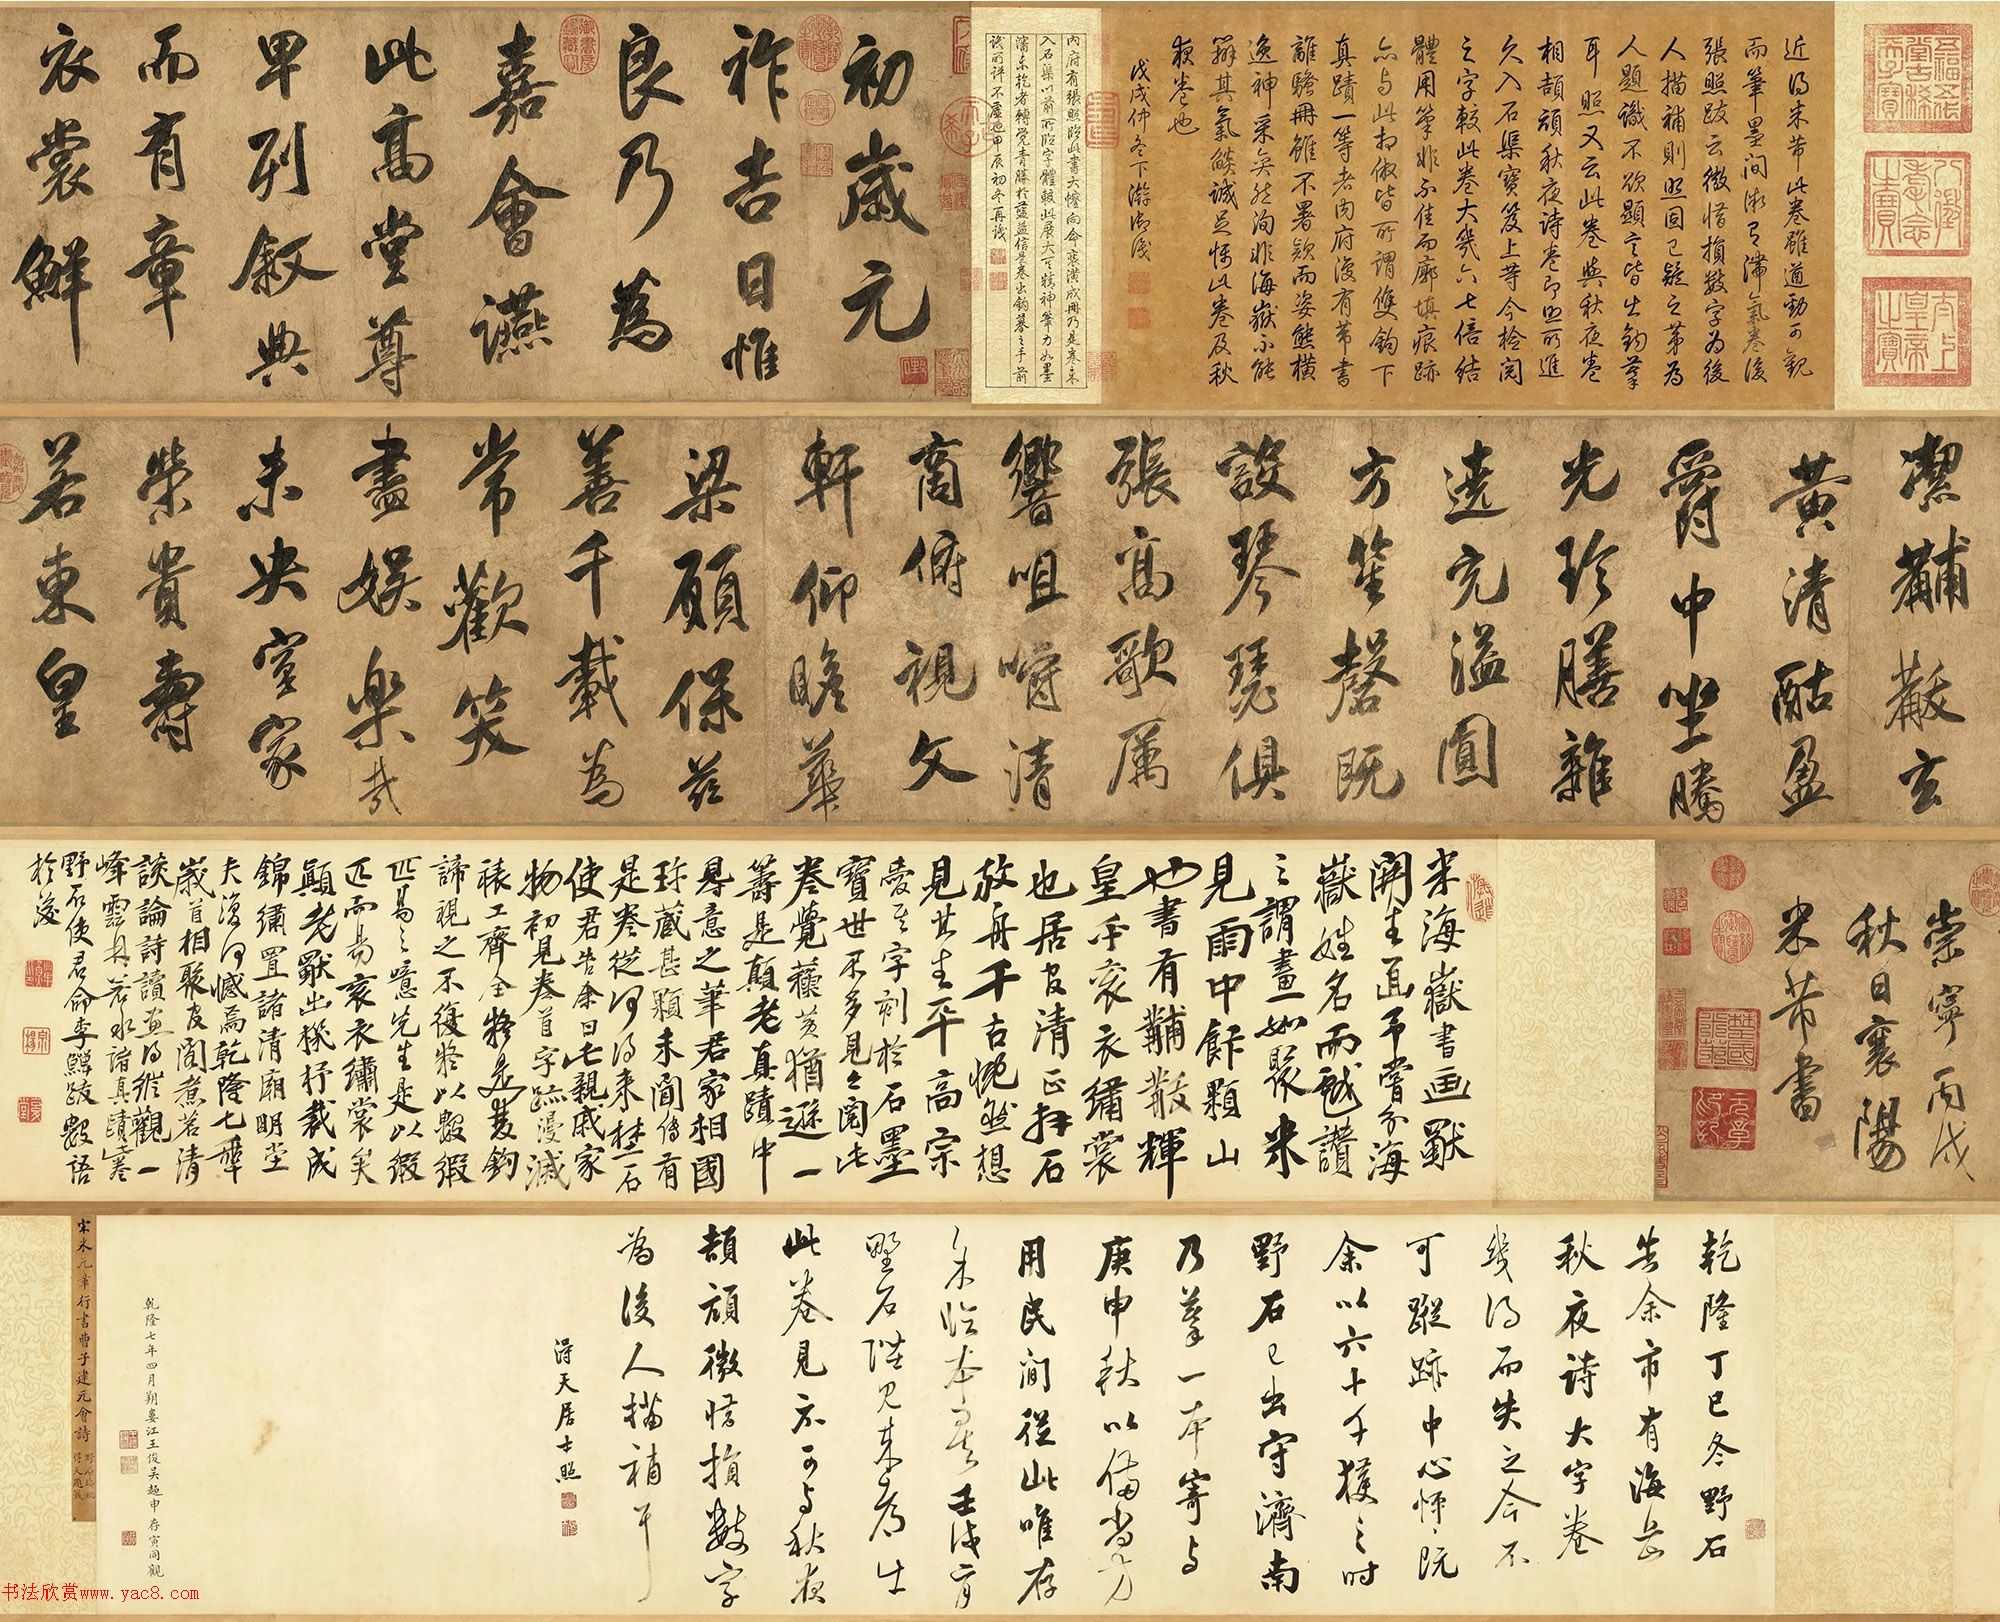 五福五代堂古稀天子寶
八徵耄念之寶
太上皇帝之寶
近得米芾此卷雖遒勁可觀
而筆墨間微有滯氣卷後
張照跋云微惜損數字為後
人描補則照固已疑之第為
人題識不欲顯言皆出鉤摹
耳照又云此卷與秋夜卷
相頡頏秋夜詩卷即照所進
久入石渠寶笈上等今檢閱
之字較此卷大幾六七倍結
體用筆非不佳而廓填痕跡
亦与此相倣皆所謂雙鉤下
真蹟一等者内府復有芾書
離騷冊雖不署欵而姿態橫
逸神采奕然洵非海嶽不能
辦其氣燄誠足怖此卷及秋
夜卷也
戊戌仲冬下澣御識
内府有張照臨此書大幀向命裝潢成冊乃是卷未
入石渠以前所臨字體較此展大可精神筆力如墨
瀋未乾者轉覺青勝於藍益信是卷出鉤摹之手前
識所評不虛也甲辰初冬再識
初歲元
祚吉日惟
良乃為
嘉會讌
此高堂尊
卑列叙典
而有章
衣裳鮮
潔黼黻玄
黃清酤盈
爵中坐騰
光珍膳雜
遶充溢圓
方笙磬既
設琴瑟俱
張高歌厲
響咀嚼清
商俯視文
軒仰瞻華
梁願保茲
善千載為
常歡笑
盡娛樂哉
未央室家
榮貴壽
若東皇
崇寧丙戌
秋日襄陽
米芾書
米海嶽書画獸
開生面予嘗分海
嶽姓名而戲讚
之謂畫如聚米
見雨中餘顆山
也書有黼黻輝
皇年袞衣繡裳
也居官清正拜石
放舟千古恍然想
見其生平高宗
愛其字刻於石墨
寶世不多見今閱此
卷覺蘓黃猶遜一
籌是顛老真蹟中
意之筆君家相國
珍藏甚顆未聞傳有
是卷從何得來野石
使君告余曰此親戚家
物初見卷首字跡漫滅
裱工齊全將是雙鉤
諦視之不復將以數緞
匹易之噫先生是以緞
匹而易袞衣繡裳矣
顛老獸出機抒裁成
錦繡置諸清廟明堂
夫復何憾焉乾隆七年
歲首相聚官閣煮茗清
談論詩讀画得縱觀一
峰雲林若水諸真蹟卷
野石使君命李鱓跋數語
於後
乾隆丁巳冬野石
告余市有海岳
秋夜詩大字卷
幾得而失之今不
可蹤跡中心怦怦既
余以六十千獲之時
野石已出守濟南
乃摹一本寄与
庚申秋以備尚方
用民間從此唯存
余臨本矣壬戌育
野石陛見來京出
此卷見示可与秋夜
頡頏微惜損數字
為後人描補耳
得天居士照
乾隆七年四月朔婁江王俊吳趙申存寅同觀
宋米元章行書曹子建元會詩
野石珍秘
得天題籤
书法欣赏www.yac8.com